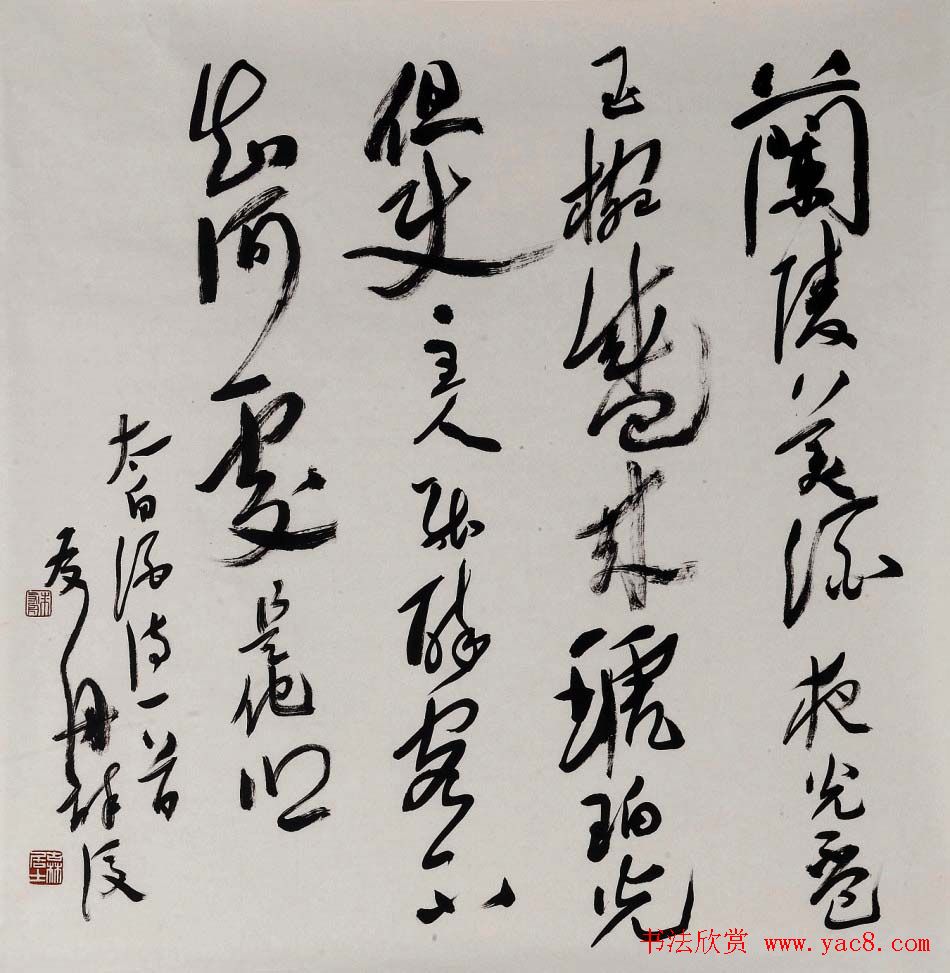 蘭陵美酒夜光盃
玉椀盛來琥珀光
但使主人能醉客不
知何處是他鄉
太白酒詩一首
书法欣赏 www.yac8.com